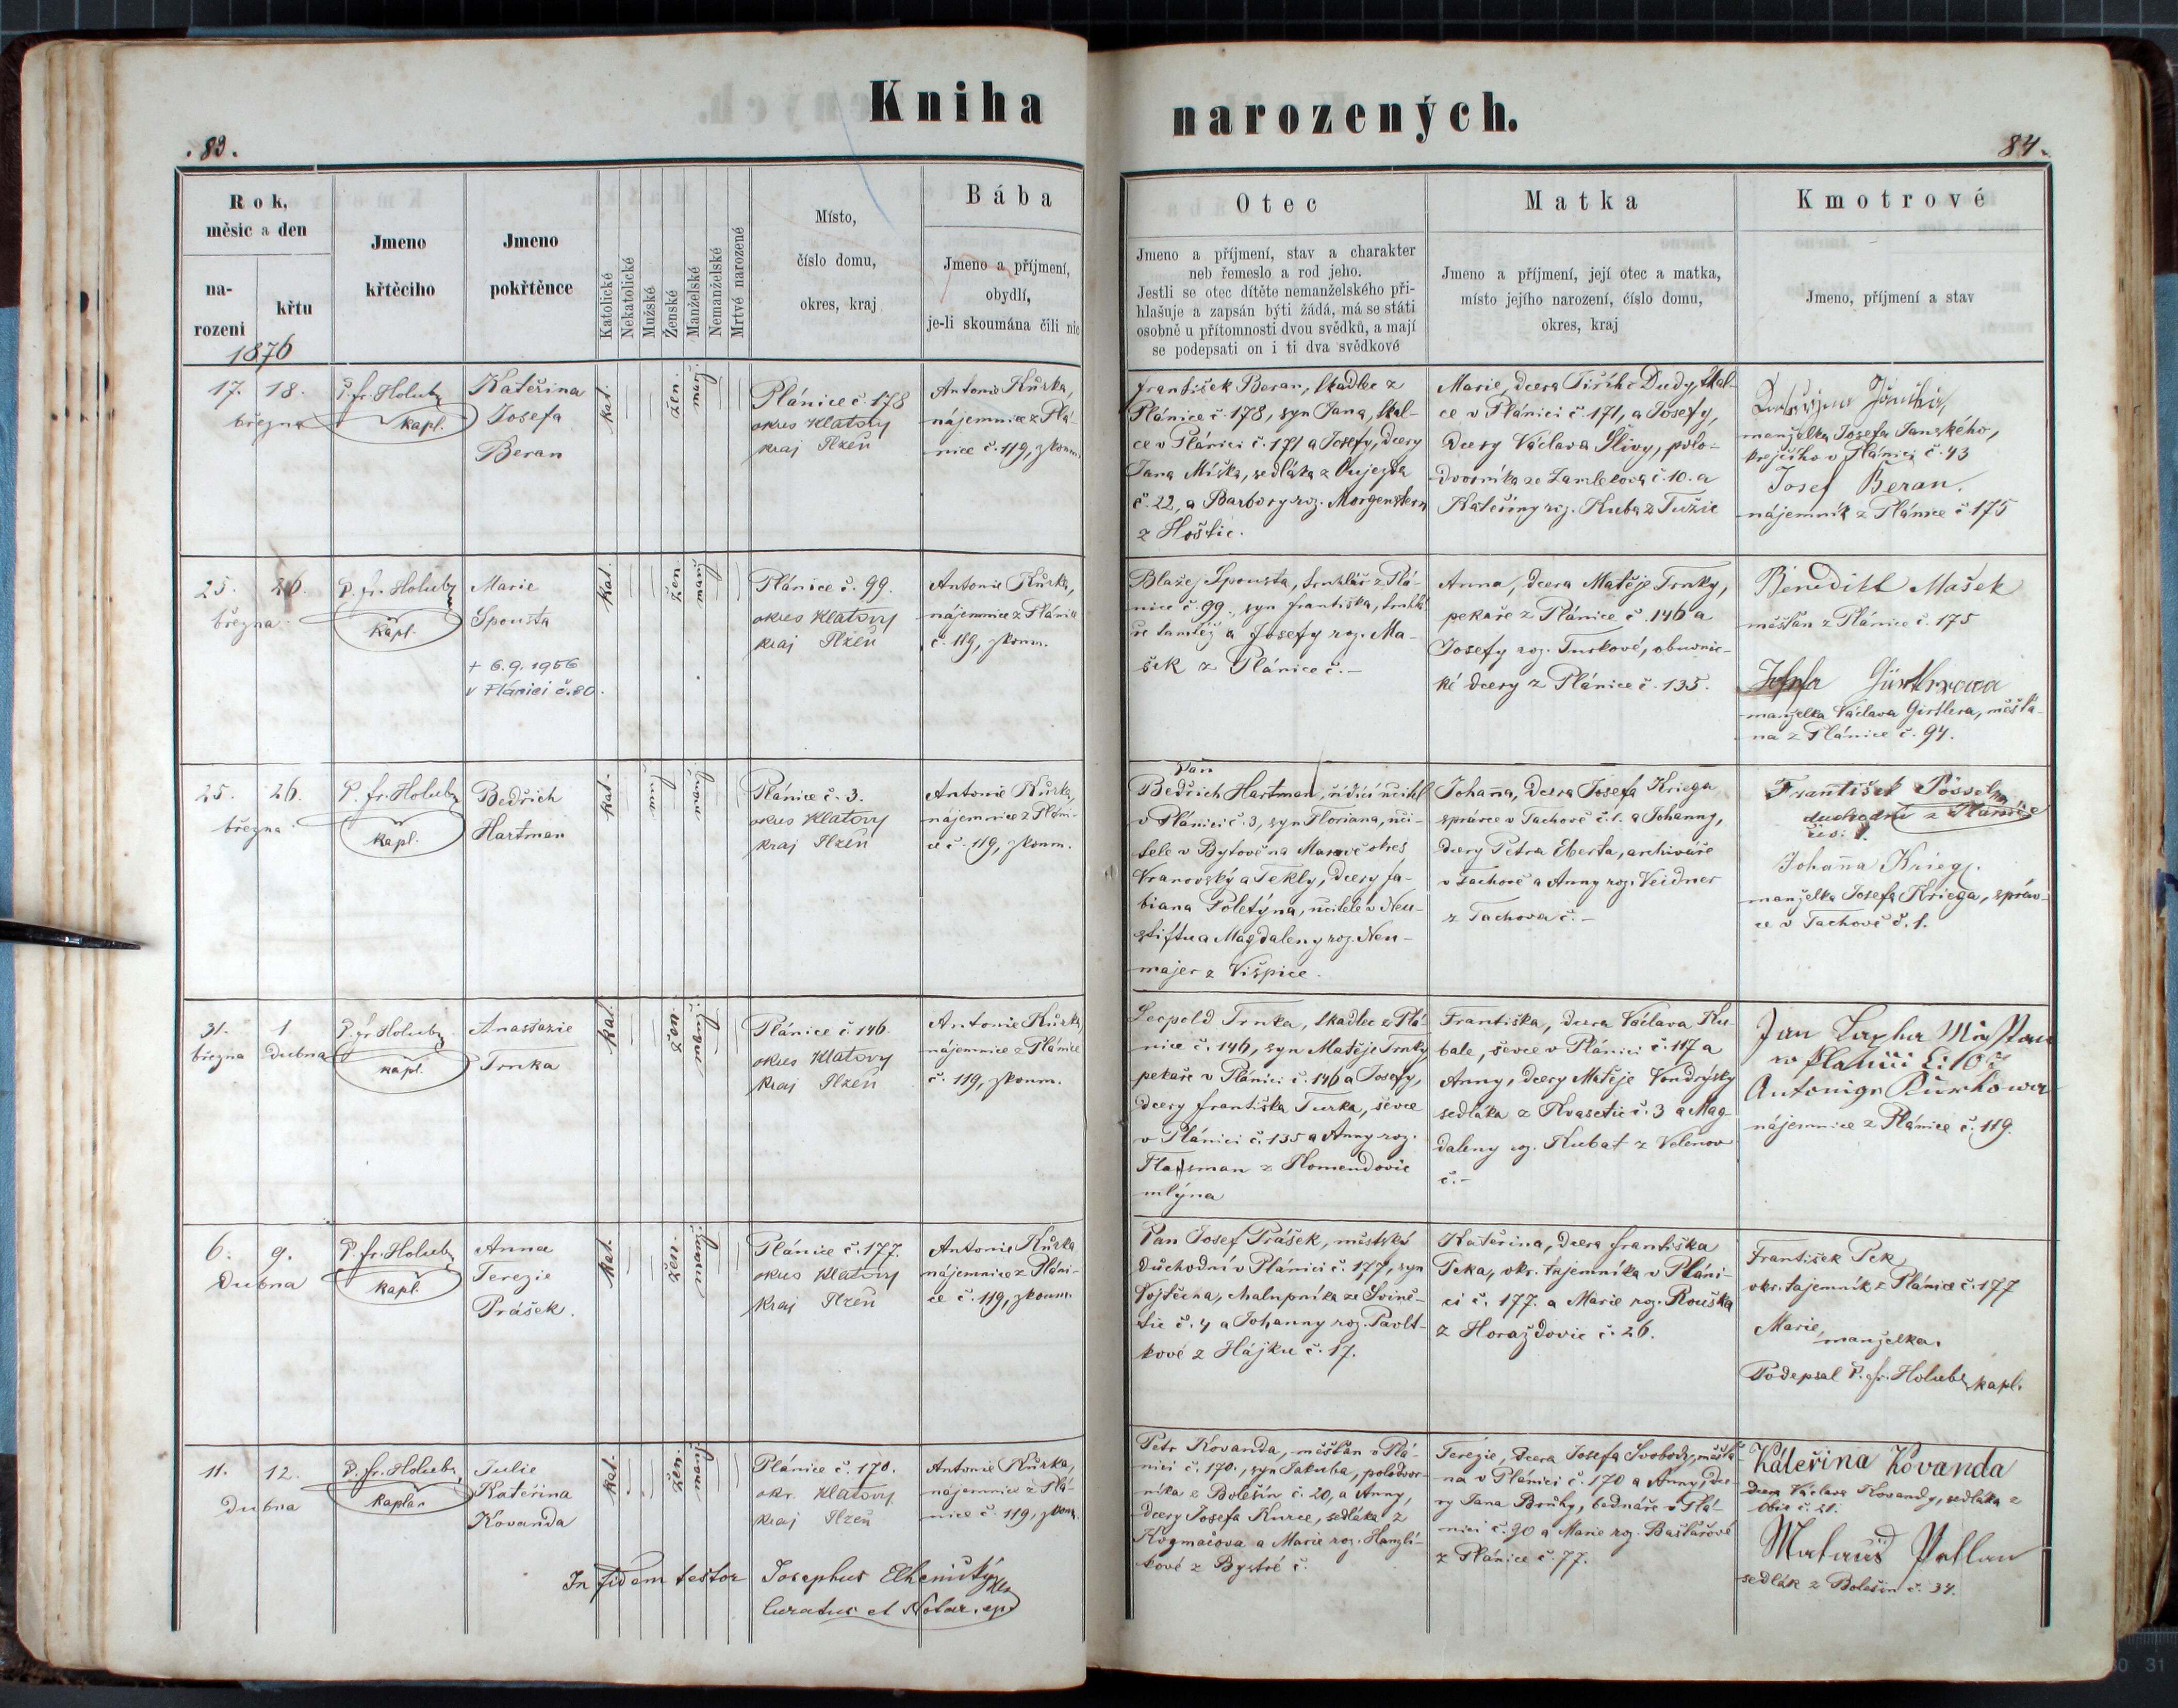 Kniha
.83.
Rok,
měsíc a den
na-
rození
křtu
Jmeno
křtěcího
Jmeno
pokřtěnce
Katolické
Nekatolické
Mužské
Ženské
Manželské
Nemanželské
Mrtvé narozené
Místo,
číslo domu,
okres, kraj
Bába
Jmeno a příjmení,
obydlí,
je-li skoumána čili nic
1876
17. 18.
března
P. fr. Holub
kapl.
Kateřina
Josefa
Beran
kat.
žen.
man
Plánice č. 178
okres Klatovy
kraj Plzeň
Antonie Kůrka,
nájemnice z Plá-
nice č. 119, zkoum.
25. 26.
března.
P. fr. Holub
Kapl.
Marie
Spousta
+ 6.9.1956
v Plánici č.80.
kat.
žen
Plánice č. 99.
okres Klatovy
kraj Plzeň
Antonie Kůrka,
nájemnice z Plánice
č. 119, zkoum.
25. 26.
března.
P. fr. Holub
Kapl.
Bedřich
Hartman
kat.
Plánice č. 3.
okres Klatovy
kraj Plzeň
Antonie Kůrka,
nájemnice z Pláni-
ce č. 119, zkoum.
31. 1.
března dubna
P. fr. Holub
kapl.
Anastazie
Trnka
kat.
žen.
Plánice č. 146.
okres Klatovy
kraj Plzeň
Antonie Kůrka,
nájemnice z Plánice
č. 119, zkoum.
6. 9.
Dubna
P. fr. Holub
kapl.
Anna
Terezie
Prášek.
kat.
žen.
Plánice č. 177.
okres Klatovy
kraj Plzeň
Antonie Kůrka
nájemnice z Pláni-
ce č. 119, zkoum.
11. 12.
Dubna
P. fr. Holub
kaplan
Julie
Kateřina
Kovanda
kat.
žen.
Plánice č. 170.
okr. Klatovy
kraj Plzeň
Antonie Kůrka,
nájemnice z Plá-
nice č. 119, zkoum.
In fidem testor Josephus
Curatus et Notar. ep.
narozených.
84.
Otec
Jmeno a příjmení, stav a charakter
neb řemeslo a rod jeho.
Jestli se otec dítěte nemanželského při-
hlašuje a zapsán býti žádá, má se státi
osobně u přítomnosti dvou svědků, a mají
se podepsati on i ti dva svědkové
Matka
Jmeno a příjmení, její otec a matka,
místo jejího narození, číslo domu,
okres, kraj
Kmotrové
Jmeno, příjmení a stav
František Beran, tkadlec z
Plánice č. 178, syn Jana, tkal-
ce v Plánici č. 171 a Josefy, dcery
Jana Míška, sedláka z Oujezda
č. 22, a Barbory roz. Morgenstern
z Hoštic.
Marie, dcera Jiřího Dudy, tkal-
ce v Plánici č. 171, a Josefy,
dcery Václava Slivy, polo-
dvorníka ze Zamlekova č. 10. a
Kateřiny roz. Kuba z Tužic
manželka Josefa Janského,
krejčího v Plánici č. 43
Josef Beran.
nájemník z Plánice č. 175
Blažej Spousta, truhlář z Plá-
nice č. 99., syn Františka, truhlá
ře tamtéž a Josefy roz. Ma-
šek z Plánice č.-
Anna, dcera Matěje Trnky,
pekaře z Plánice č. 146 a
Josefy roz. Turkové, obuvnic-
ké dcery z Plánice č. 135.
Benedikt Mašek
měšťan z Plánice č. 175
manželka Václava Girtlera, měšťa-
na z Plánice č. 94.
Pan
Bedřich Hartman, řídící učitel
v Plánici č. 3, syn Floriana, uči-
tele v Bytově na Moravě okres
Vranovský a Tekly, dcery fa-
biana Poletýna, učitele v Neu-
stiftu a Magdaleny roz. Neu-
majer z Višpice.
Johanna, dcera Josefa Kriega
správce v Tachově č. 1. a Johanny,
dcery Petra Eberta, archiváře
v Tachově a Anny roz. Veidner
z Tachova č.-
František Pössel
duchodní z Plánice
čis: 1.
Johanna Krieg.
manželka Josefa Kriega, správ-
ce v Tachově č. 1.
Leopold Trnka, tkadlec z Plá-
nice č. 146, syn Matěje Trnky
pekaře v Plánici č. 146 a Josefy,
dcery františka Turka, ševce
v Plánici č. 135 a Anny roz.
z Komendovic
mlýna
Františka, dcera Václava Ku-
bale, ševce v Plánici č. 117 a
Anny, dcery Matěje Vondrysky
sedláka z Kvasetic č. 3 a Mag-
daleny roz. Kubat z Velenov
č.-
nájemnice z Plánice č. 119.
Pan Josef Prášek, městský
důchodní v Plánici č. 177, syn
Vojtěcha, chalupníka ze Svině-
tic č. 4 a Johanny roz. Pavlt-
kové z Hájku č. 17.
Kateřina, dcera františka
Peka, okr. tajemníka v Pláni-
ci č. 177. a Marie roz. Rouška
z Horažďovic č. 26.
František Pek
okr. tajemník z Plánice č. 177
Marie manželka.
Podepsal P. fr. Holub kapl.
Petr Kovanda, měšťan v Plá-
nici č. 170., syn Jakuba, polodvor-
níka z Bolešin č. 20, a Anny,
dcery Josefa Kurce, sedláka z
Kozmačova a Marie roz. Hanzlí-
kové z Bystré č.
Terezie, dcera Josefa Svobody, měšťa-
na v Plánici č. 170 a Anny, dce-
ry Jana Bouhy, bednáře v Plá-
nici č. 90 a Marie roz. Bašťařové
z Plánice č. 77.
Káteřina Kovanda
dcera Václava Kovandy, sedláka z
sedlák z Bolešin č. 34.